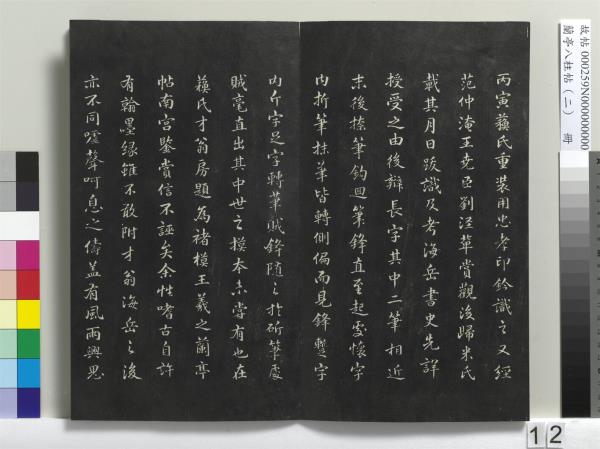 丙寅蘇氏重裝用忠孝印鈐識之又經
范仲淹王堯臣劉涇輩賞觀後歸米氏
載其月日跋識及考海岳書史先詳
授受之由後辯長字其中二筆相近
末後捺筆鈎迴筆鋒直至起處懷字
内折筆抹筆皆轉側偏而見鋒蹔字
内斤字足字轉筆賊鋒隨之於斫筆處
賊毫直出其中世之模本未嘗有也在
蘇氏才翁房題為褚模王羲之蘭亭
帖南宮鑒賞信不誣矣余性嗜古自許
有翰墨緣雖不敢附才翁海岳之後
亦不同噓聲呵息之儔蓋有風雨興思
故帖000259N000000000
蘭亭八柱帖(二) 冊
12